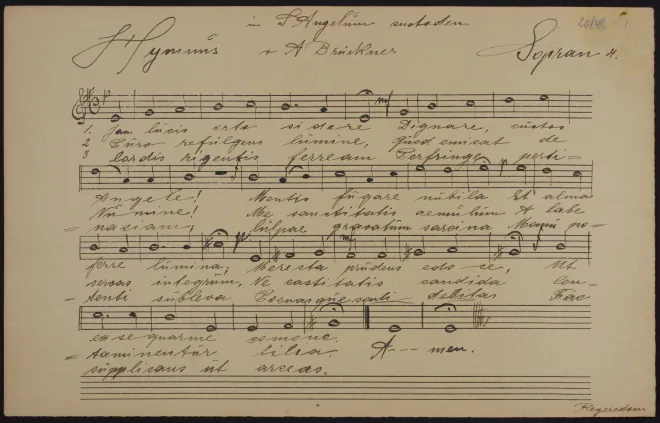 in S. Angelum custodem
Hymnus v A. Bruckner Sopran 4.
1. Jam lucis orto sidere Dignare, custos
2 Túro refúlgens lúmine, Quod emicat de
3 Cordis rigentis ferream Perfringe perti=
Angele! Mentis fúgare núbila Et alma
Núnime! Me sanctitatis aemulúm A labe
=naciam, Cúlpae gravatúm sarcina Manú po=
ferre lúmina; Meresta prúdens edoce, Ut
servas integrúm, Ne castitatis candida Con=
=tenti súbleva Escenasque debitas Fac
exsequarme comone.
=taminentúr lilia. A--- men.
súpplicans út arceas.